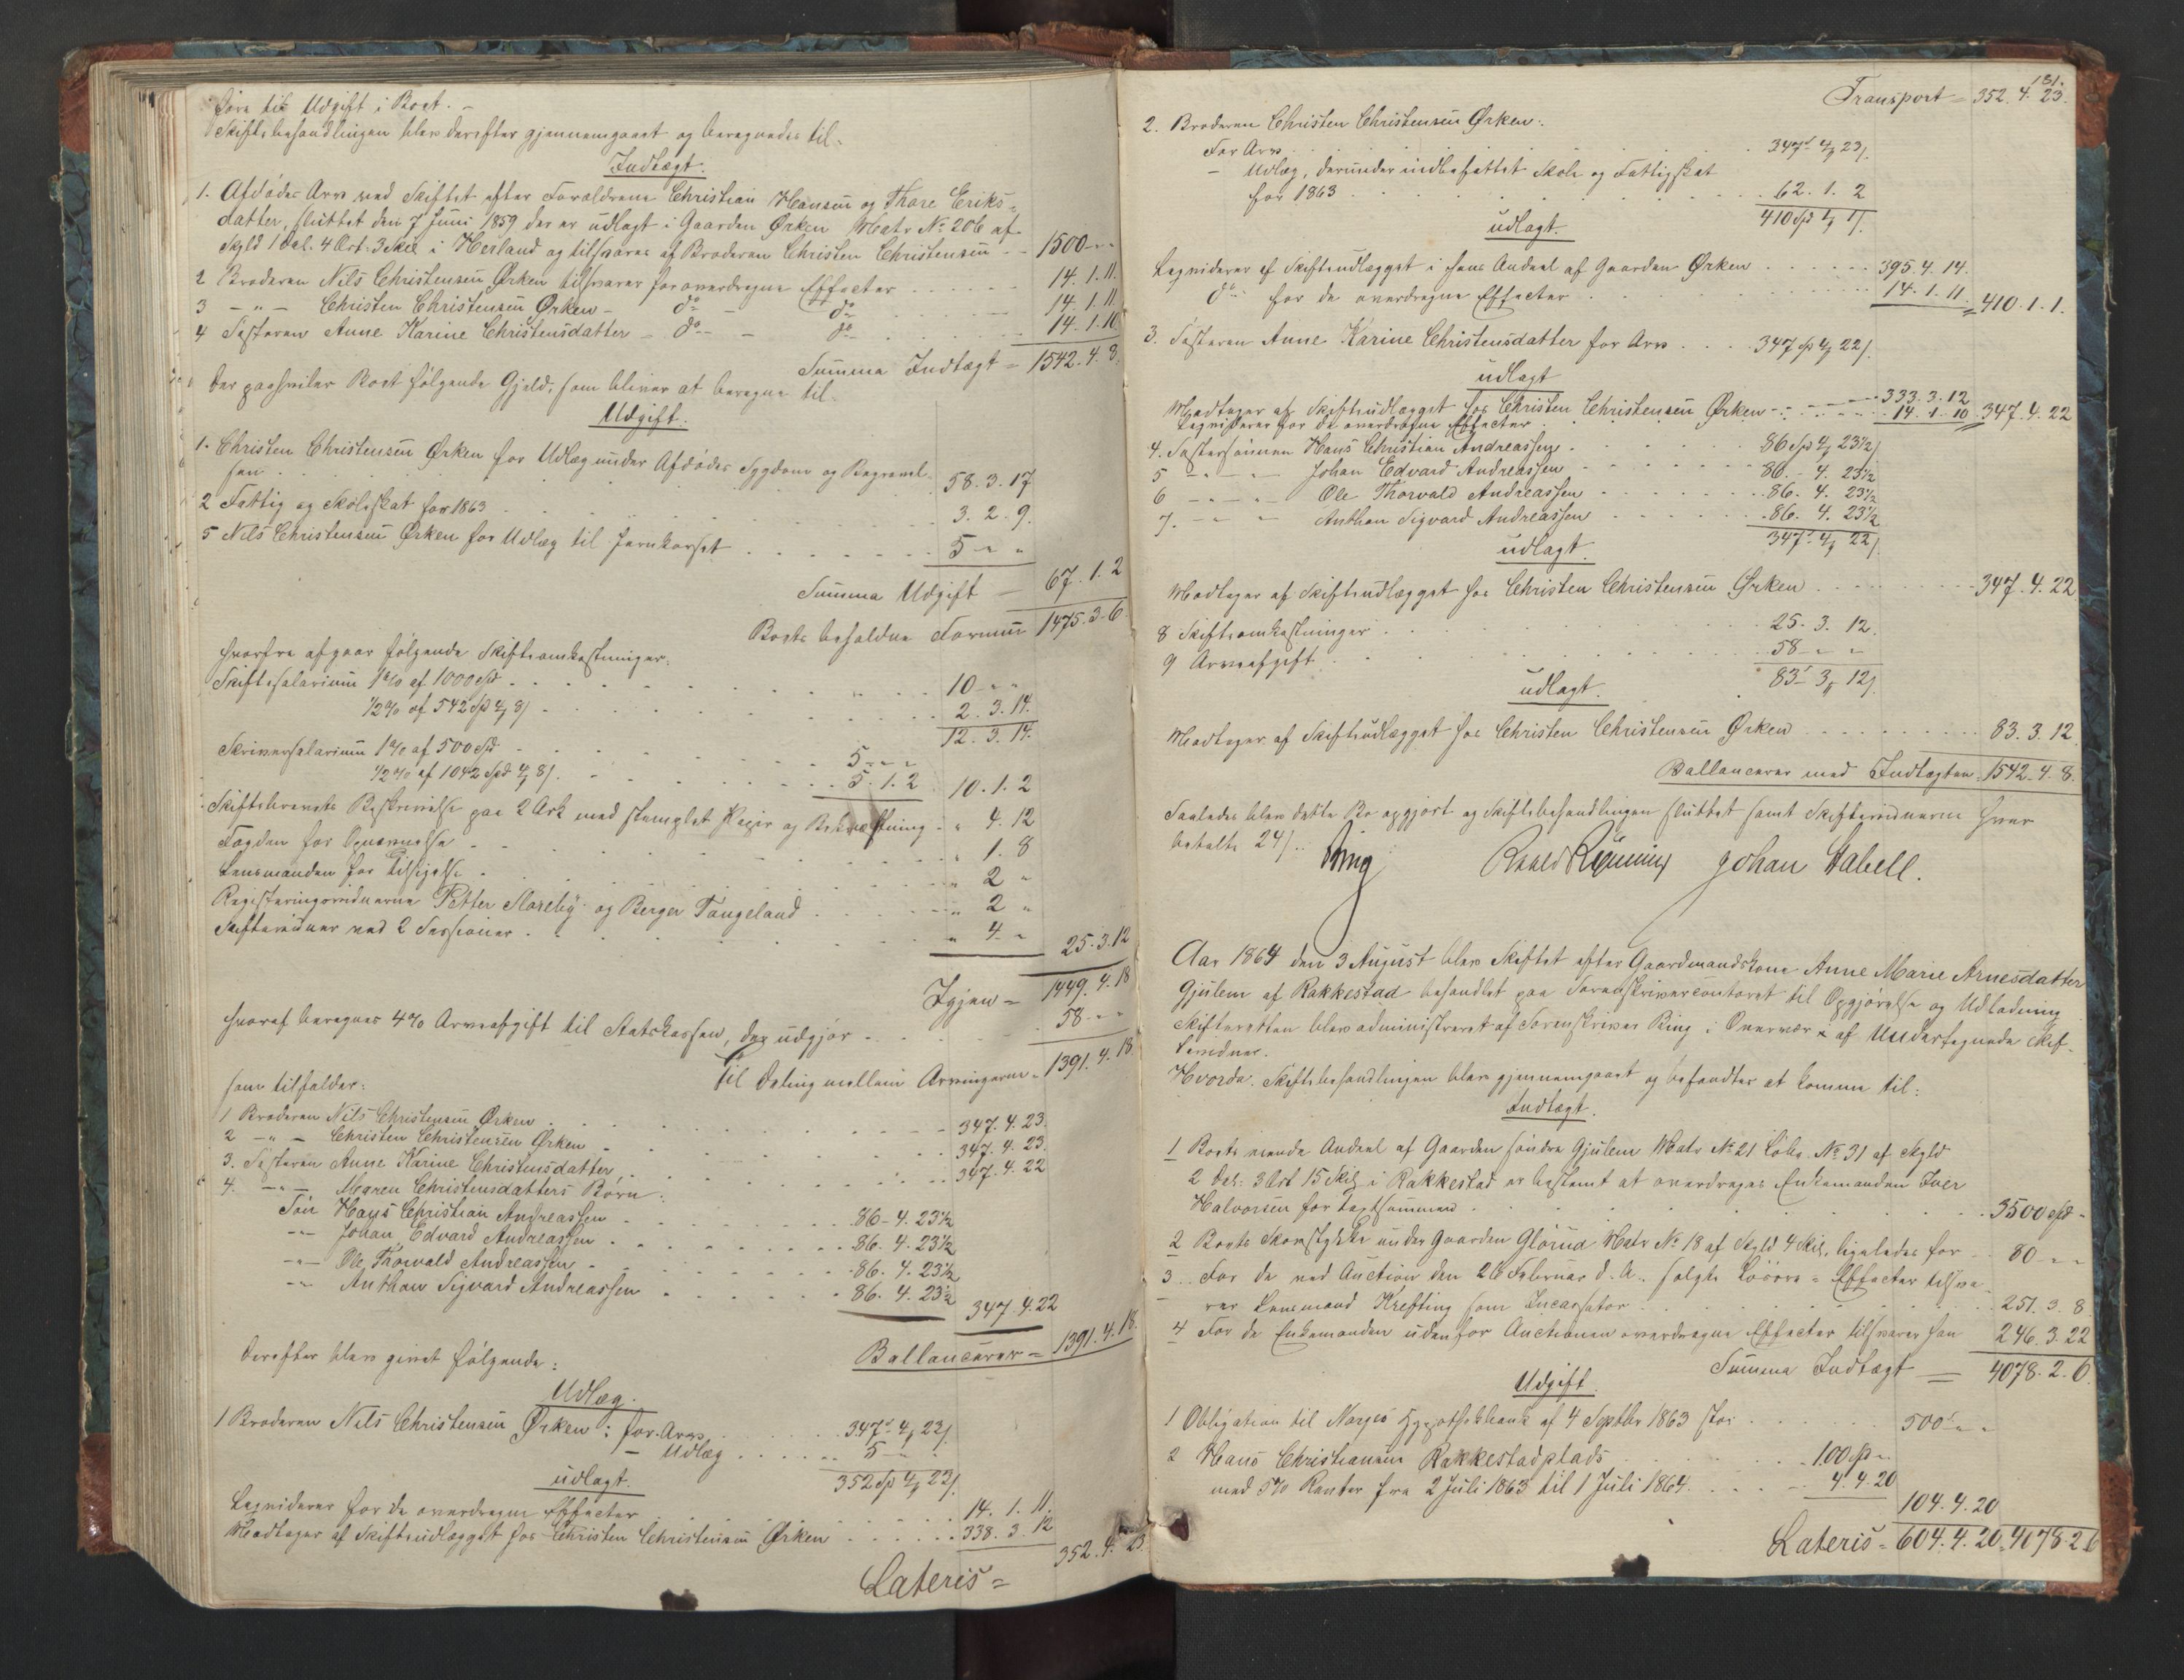 føre til Udgift i Boet. –
Skiftebehandlingen blev derefter gjennemgaaet og beregnedes til
Indtægt.
1. Afdødes Arv ved Skiftet efter Forældrene Christian Hansen og Thore Eriks-
datter, sluttet den 7 Juni 1859 der er udlagt i Gaarden Ørken Matr No 206 af
Skyld 1 Dal. 4 Ort. 3 Skil i Herland og tilsvares af Broderen Christen Christensen - - 1500 - -
2 Broderen Nils Christensen Ørken tilsvarer for overdragne Effecter 14. 1. 11.
3 - " - Christen Christensen Ørken - do - do 14. 1. 11
4 Søsteren Anne Karine Christensdatter - do - do 14. 1. 10
Summa Indtægt = 1542. 4. 8.
Der paahviler Boet følgende Gjeld, som bliver at beregne til
Udgift.
1. Christen Christensen Ørken for Udlæg under Afdødes Sygdom og Begravel-
sen 58. 3. 17
2 Fattig og Skoleskat for 1863 3. 2. 9.
5 Nils Christensen Ørken for Udlæg til Jernkorset 5 - "
Summa Udgift — 67. 1. 2
Boets beholdne Formue 1475. 3. 6
hvorfra afgaar følgende Skifteomkostninger:
Skiftesalarium 1% af 1000 Spd 10 - "
1/2% af 542 Spd 4 8/ 2. 3. 14.
12. 3. 14.
Skriversalarium 1% af 500 Spd 5 - - -
1/2% af 1042 Spd 4 8/. 5. 1. 2 10. 1. 2
Skiftebrevets Beskrivelse paa 2 Ark med stemplet Papir og Bekræftning - " 4. 12
Fogden for Opnævnelse " 1. 8
Lensmanden for Tilsigelse " 2 "
Registeringsvidnerne Petter Sloreby og Berger Tangeland " 2 "
Skiftevidner ved 2 Sessioner " 4 - 25. 3. 12
Igjen = 1449. 4. 18
hvoraf beregnes 4% Arveafgift til Statskassen, der udgjør 58 - -
Til Deling mellem Arvingerne = 1391. 4. 18
som tilfalder:
1 Broderen Nils Christensen Ørken 347. 4. 23.
2 - " - Christen Christensen Ørken 347. 4. 23.
3. Søsteren Anne Karine Christensdatter 347. 4. 22
4. - " - Maren Christensdatters Børn:
Søn Hans Christian Andreassen 86 - 4. 23 1/2
- " - Johan Edvard Andreassen 86. 4. 23 1/2
- " - Ole Thorvald Andreassen 86. 4. 23 1/2
- " - Anthon Sigvard Andreassen 86. 4. 23 1/2 347. 4. 22
Ballancerer = 1391. 4. 18.
Derefter blev givet følgende:
Udlæg.
1 Broderen Nils Christensen Ørken: for Arv 347 4 23/
- Udlæg 5
352 Sp 4 23/.
udlagt.
Leqviderer for de overdragne Effecter 14. 1. 11.
Modtager af Skifteudlægget hos Christen Christensen Ørken 338. 3. 12 352. 4. 23.
Lateris =
131.
Transport = 352. 4. 23.
2. Broderen Christen Christensen Ørken:
For Arv 347 4 23/.
- Udlæg, derunder indbefattet Skole og Fattigskat
for 1863 62. 1. 2
410 Sp 1 1/.
udlagt.
Leqviderer af Skifteudlægget i hans Andeel af Gaarden Ørken 395. 4. 14.
do for de overdragne Effecter 14. 1. 11. = 410. 1. 1.
3. Søsteren Anne Karine Christensdatter for Arv 347 Sp 4 22/.
udlagt
Modtager af Skifteudlægget hos Christen Christensen Ørken 333. 3. 12
Leqviderer for de overdragne Effecter 14. 1. 10 347. 4. 22
4. Søstersønnen Hans Christian Andreassen 86 Sp 4 23 1/2/
5 - " - Johan Edvard Andreassen 86. - 4. 23 1/2
6 - " - Ole Thorvald Andreassen 86. 4. 23 1/2
7. - " - Anthon Sigvard Andreassen 86. 4. 23 1/2
347 4 22/
udlagt.
Modtager af Skifteudlægget hos Christen Christensen Ørken 347. 4. 22
8 Skifteomkostninger 25. 3. 12.
9 Arveafgift 58 - -
83 3 12/.
udlagt.
Modtager af Skifteudlægget hos Christen Christensen Ørken 83. 3. 12
Ballancerer med Indtægten = 1542. 4. 8.
Saaledes blev dette Bo opgjort og Skiftebehandlingen sluttet samt Skiftevidnerne hver
betalt 24/.
Ring Johan Labell.
Aar 1864 den 3 August blev Skiftet efter Gaardmandskone Anne Marie Arnesdatter
Gjulem af Rakkestad behandlet paa Sorenskrivercontoret til Opgjørelse og Udlodning
Skifteretten blev administreret af Sorenskriver Ring i Overvær af Undertegnede Skif-
tevidner.
Hvorda. Skiftebehandlingen blev gjennemgaaet og befandtes at komme til:
Indtægt.
1 Boets eiende Andeel af Gaarden søndre Gjulem Matr No 21 Løbe No 31 af Skyld
2 Dal: 3 Ort 15 Skil i Rakkestad er bestemt at overdrages Enkemanden Iver
Halvorsen for Taxtsummen 3500 Spd -
2 Boets Skovstykke under Gaarden Glørud Matr No 18 af Skyld 4 Skil. ligeledes for 80 - -
3 For de ved Auction den 26 Februar d. A. solgte Løsøre = Effecter tilsva-
rer Lensmand Krefting som Incassator 251. 3. 8
4 For de Enkemanden udenfor Auctionen overdragne Effecter tilsvarer han 246. 3. 22
Summa Indtægt = 4078. 2. 6
Udgift.
1 Obligation til Norges Hypothekbank af 4 Septbr 1863 stor 500 - -
2 Hans Christiansen Rakkestadplads 100 Sp -
med 5% Renter fra 2 Juli 1863 til 1 Juli 1864 4. 4. 20
104. 4. 20
Lateris = 604. 4. 20 = 4078. 2. 6